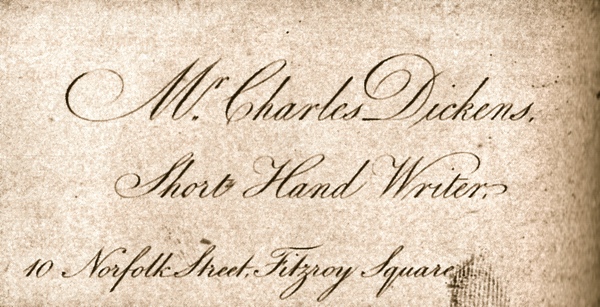 Mr. Charles Dickens,
Short Hand Writer.
10 Norfolk Street, Fitzroy Square